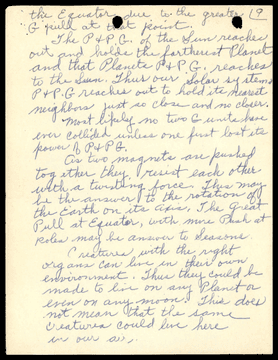 the Equator due to the greater 9
"G" pull at that point.
The P & P.G. of the Sun reaches
out and holds the fartherest Planet
and that Planets P & P.G. reaches
to the Sun. Thus our Solar system
P & P.G reaches out to hold its nearest
neighbors just so close and no closer.
Most likely no two G units have
ever collided unless one first lost its
power of P & P.G.
As two magnets are pushed
together they resist each other
with a twisting force. This may
be the answer to the rotation of
the Earth on its axis. The Great
Pull at Equator, with more Push at
poles may be answer to Seasons.
Creatures with the right
organs can live in their own
environment. Thus they could be
made to live on any Planet or
even on any moon. This does
not mean that the same
Creatures could live here
in our air.